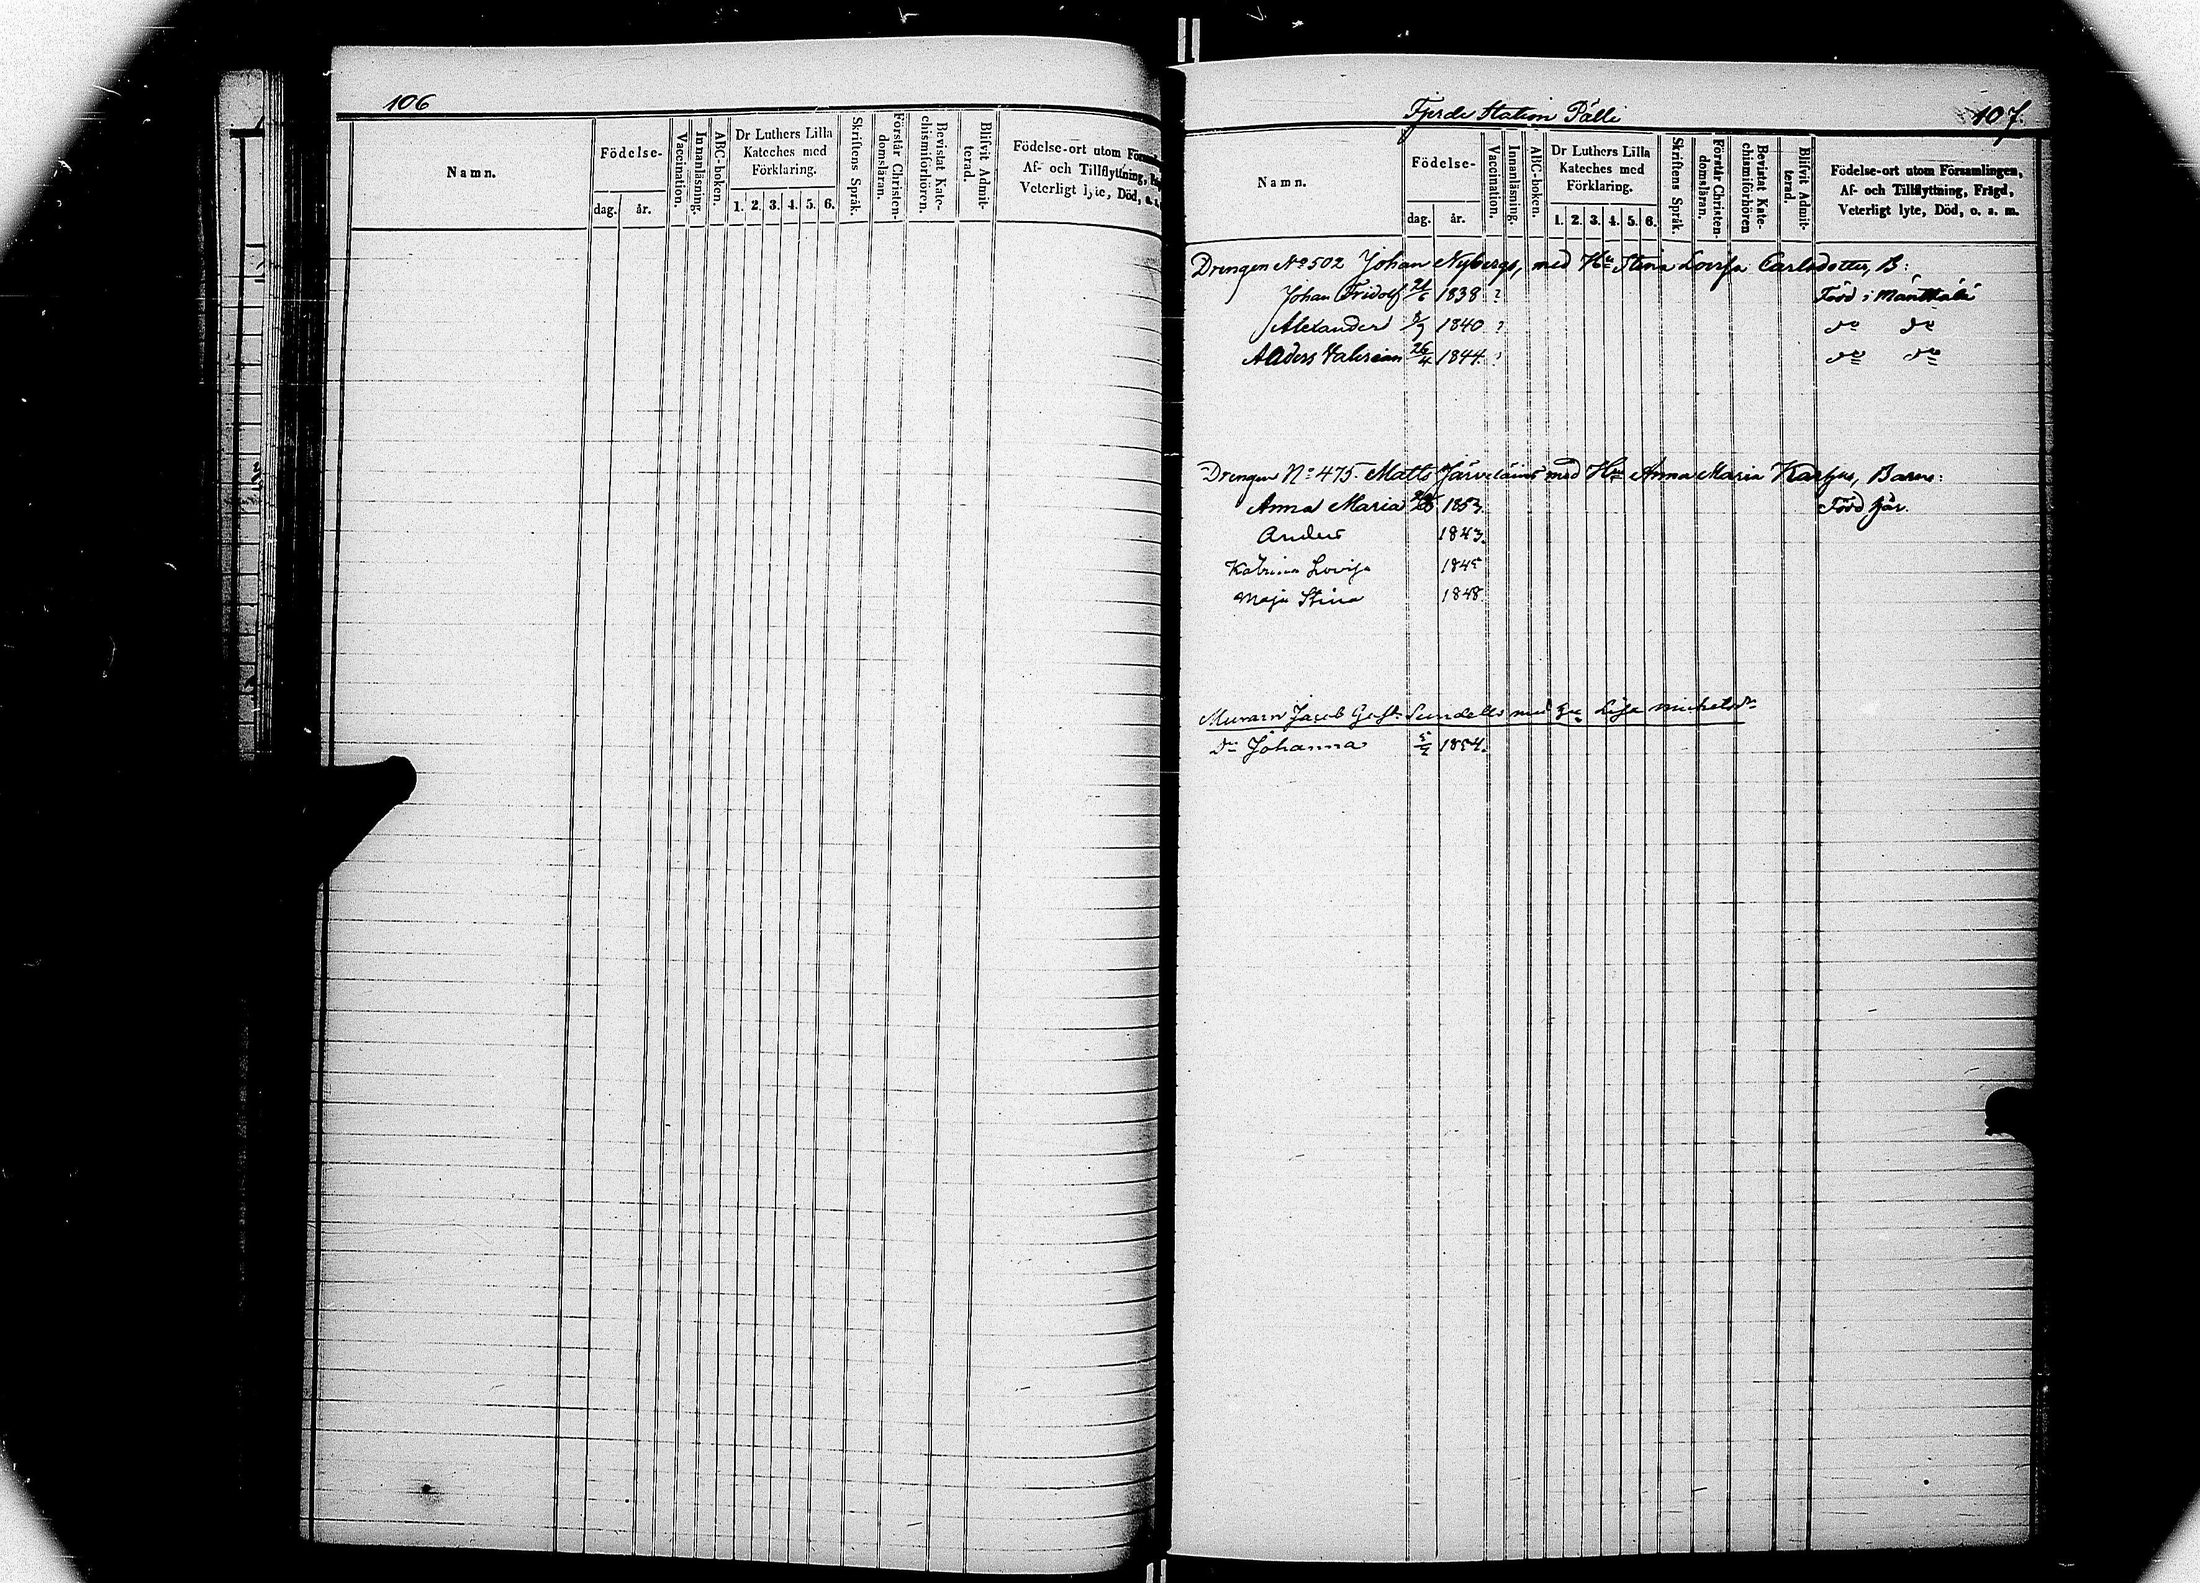 106
Namn.
Födelse-
dag. år.
Vaccination.
Innanläsning.
ABC-boken.
Dr Luthers Lilla
Kateches med
Förklaring.
1. 2. 3. 4. 5. 6.
Skriftens Språk.
Förstår Christen-
domsläran.
Bevistat Kate-
chismiförhören.
Blifvit Admit-
terad.
Födelse-ort utom
Af- och Tillflyttning,
Veterligt lyte, Död,
Fjerde Station Pälli 107.
Namn.
Födelse-
dag. år.
Vaccination.
Innanläsning.
ABC-boken.
Dr Luthers Lilla
Kateches med
Förklaring.
1. 2. 3. 4. 5. 6.
Skriftens Språk.
Förstår Christen-
domsläran.
Bevistat Kate-
chismiförhören
Blifvit Admit-
terad.
Födelse-ort utom Församlingen,
Af- och Tillflyttning, Frägd,
Veterligt lyte, Död, o. s. m.
Drengen No 502 Johan Nybergs, med Hu Stina Lovisa Carlsdotter, B:
Johan Fridolf 21/6 1838 ? Född i Mänttälä
Alexander 1840 ? do do
Anders Valerian 26/4 1844. ? do do
Drengen No 475. Matts Järveläins med Hu Anna Maria Karhus, Barn:
Anna Maria 1853. Född här.
Anders 1843.
Katrina Lovisa 1845
Maja Stina 1848.
Muraren Jacob Gust. Sundells med Hu Lisa Michelsdr
Dr Johanna 1854.